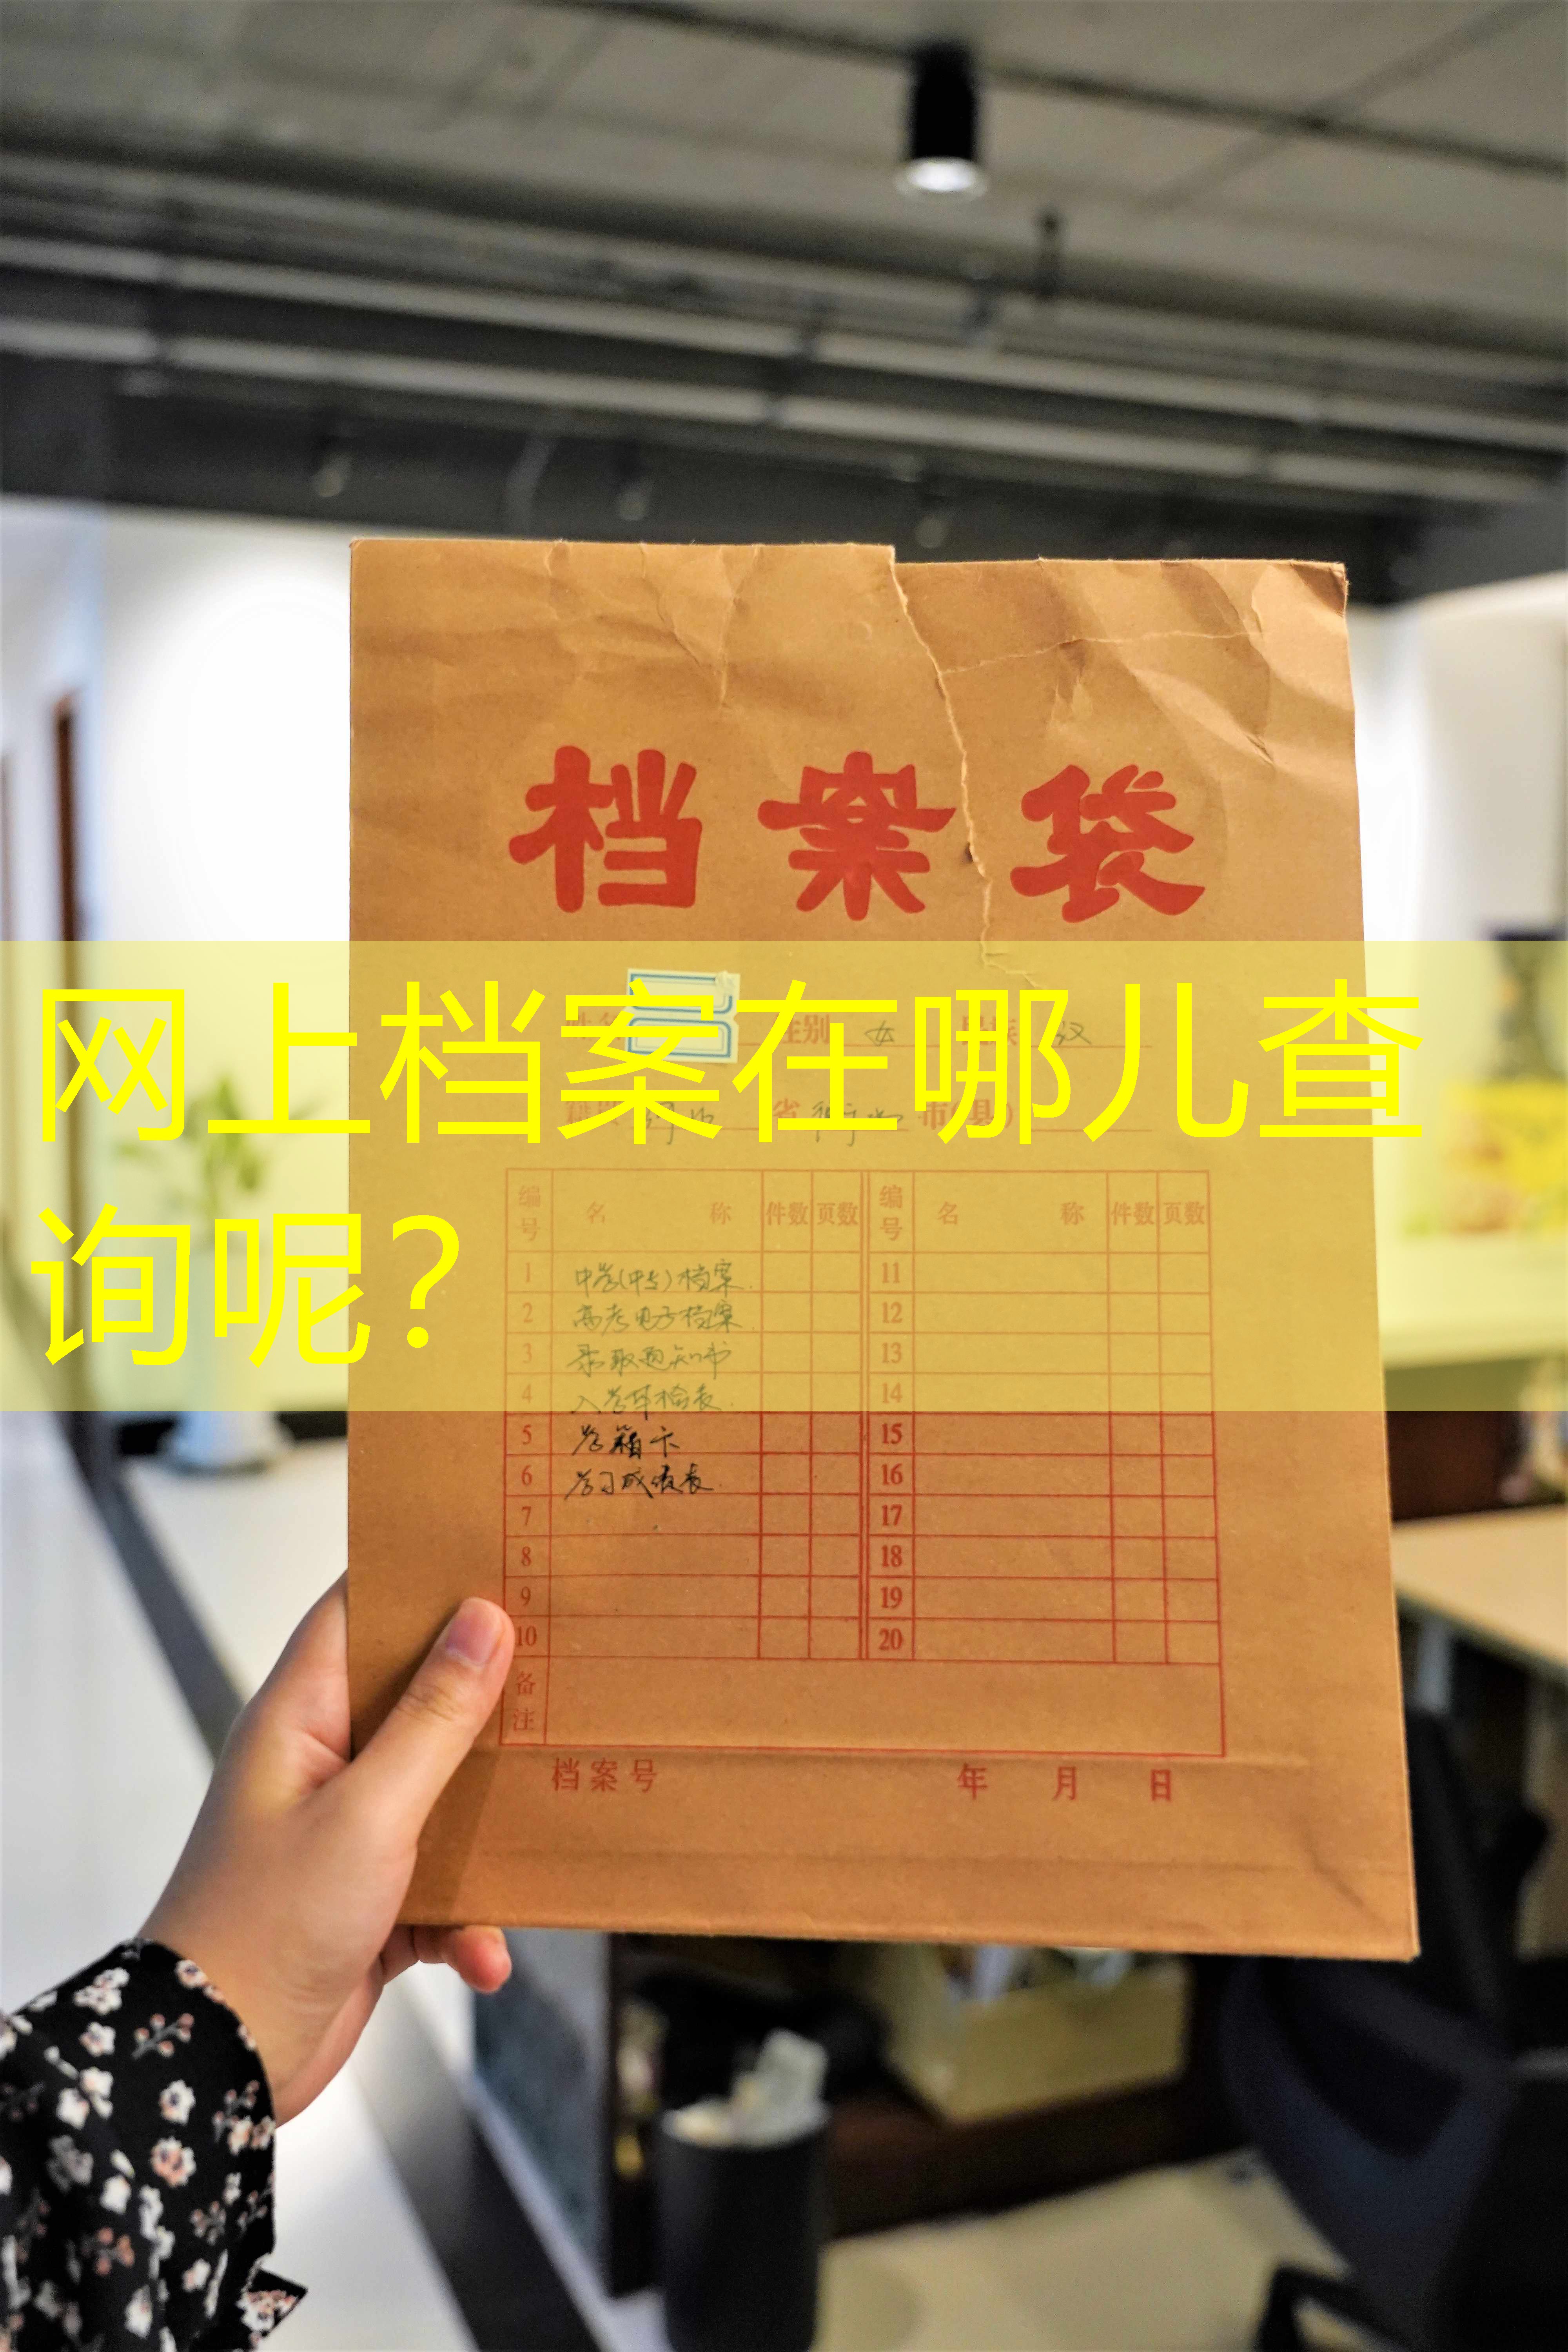 档案袋
网上档案在哪儿查
询呢？
性别 女 民族 汉
省 市(县)
编号 名称 件数 页数 编号 名称 件数 页数
1 中学(中专)档案 11
2 高考电子档案 12
3 录取通知书 13
4 入学体检表 14
5 学籍卡 15
6 学习成绩表 16
7 17
8 18
9 19
10 20
备注
档案号 年 月 日